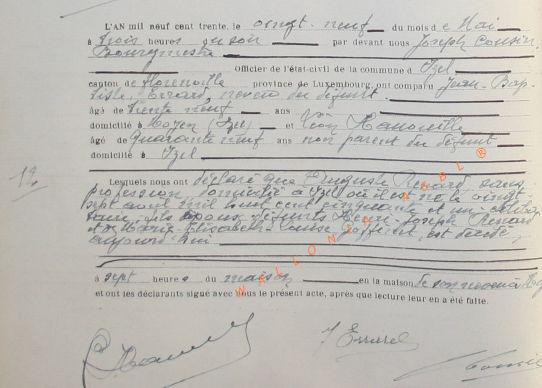 L'AN mil neuf cent trente, le vingt-neuf du mois de Mai
à trois heures du soir par devant nous Joseph Cousin,
Bourgmestre
Officier de l'état-civil de la commune d'Izel
canton de Florenville province de Luxembourg, ont comparu Jean-Bap-
tiste neveu du défunt
âgé de trente neuf ans
domicilié à Moyen (Izel) et Léon
âgé de quarante neuf ans non parent du défunt
domicilié à Izel
12
Lesquels nous ont déclaré que Auguste Renard, sans
profession, domicilié à Izel où il est né le vingt
sept août mil huit cent cinquante et un, céliba-
taire, fils époux défunts Henri Joseph Renard
et Marie Elisabeth est décédé
aujourd'hui
à sept heures du matin en la maison de son neveu à
et ont les déclarants signé avec nous le présent acte, après que lecture leur en a été faite.
WALLONIA ABL ®